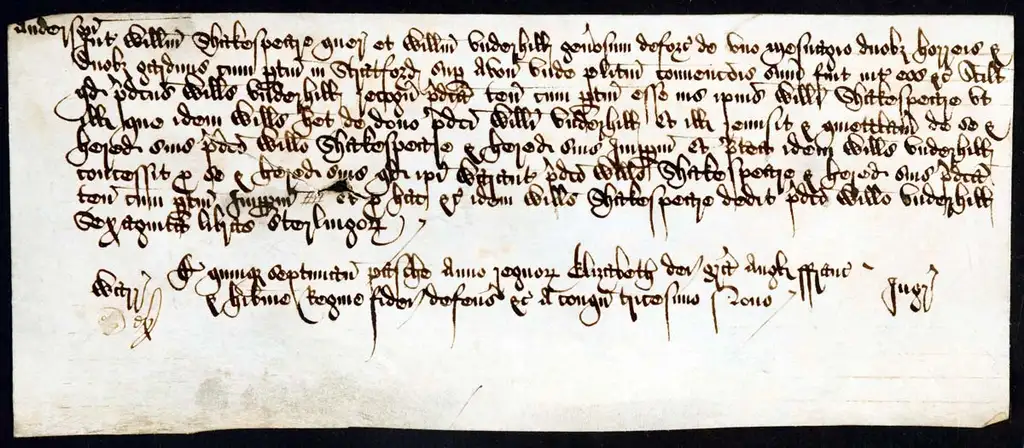 Int Willm Shakespeare quer et Willm Underhill genosum deforc de uno mesuagio duobz horreis &
duobz gardinis cum ptin in Stratford sup Avon unde plitum convencois sum fuit int eos &c Scilt
qd pdcus Wills Underhill recogn pdca ten cum ptin esse ius ipius Willi Shakespeare ut
ill que idem Wills het de dono pdci Willi Underhill Et ill remisit & quietclam de se &
hered suis pdco Willo Shakespeare & hered suis Imppm Et ptea idem Wills Underhill
concessit p se & hered suis qd ipi warant pdco Willo Shakespeare & hered suis pdca
ten cum ptin Imppm Et p hac &c idem Wills Shakespeare dedit pdco Willo Underhill
Sexaginta libras sterlingor
A quinq septiman pasche Anno regnor Elizabeth dei gra Angl ffranc
Warr
& Hibnie Regine fidei defens &c A conqu tricesimo Nono